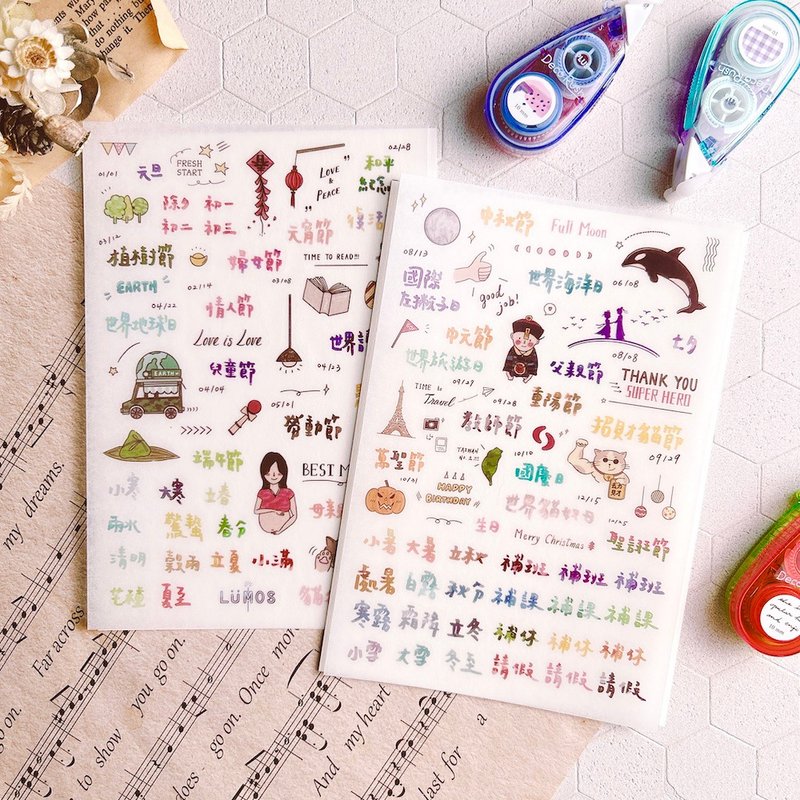 Mary
do nothing but
change it. Then
01/01
元旦
FRESH
START
02/28
LOVE
&
PEACE
和平
除夕 初一
初二 初三
元宵節
03/12
植樹節
婦女節
TIME TO READ!!!
EARTH
02/14
03/08
04/22
情人節
世界地球日
Love is Love
EARTH
兒童節
04/04
04/23
05/01
勞動節
端午節
BEST M
小寒 大寒 立春
雨水 驚蟄 春分
清明 穀雨 立夏 小滿
芒種 夏至 LUMOS
中秋節
Full Moon
08/13
國際
左撇子日
I good
job!
世界海洋日
06/08
中元節
七夕
世界旅遊日
父親節
08/08
09/27
THANK YOU
SUPER HERO
TIME to
Travel
重陽節
09/28
教師節
招財貓節
09/29
TAIWAN
NO.1!!!
10/10
國慶日
萬聖節
HAPPY
BIRTHDAY
生日
世界貓奴日
12/15
12/25
Merry Christmas
聖誕節
小暑 大暑 立秋 補班 補班 補班
處暑 白露 秋分 補課 補課 補課
寒露 霜降 立冬 補休 補休 補休
小雪 大雪 冬至 請假 請假 請假
10 mm
10 mm
my dreams.
Far across
you go on.
to show
go on.
does - go on. Once more
and my heart
last for a